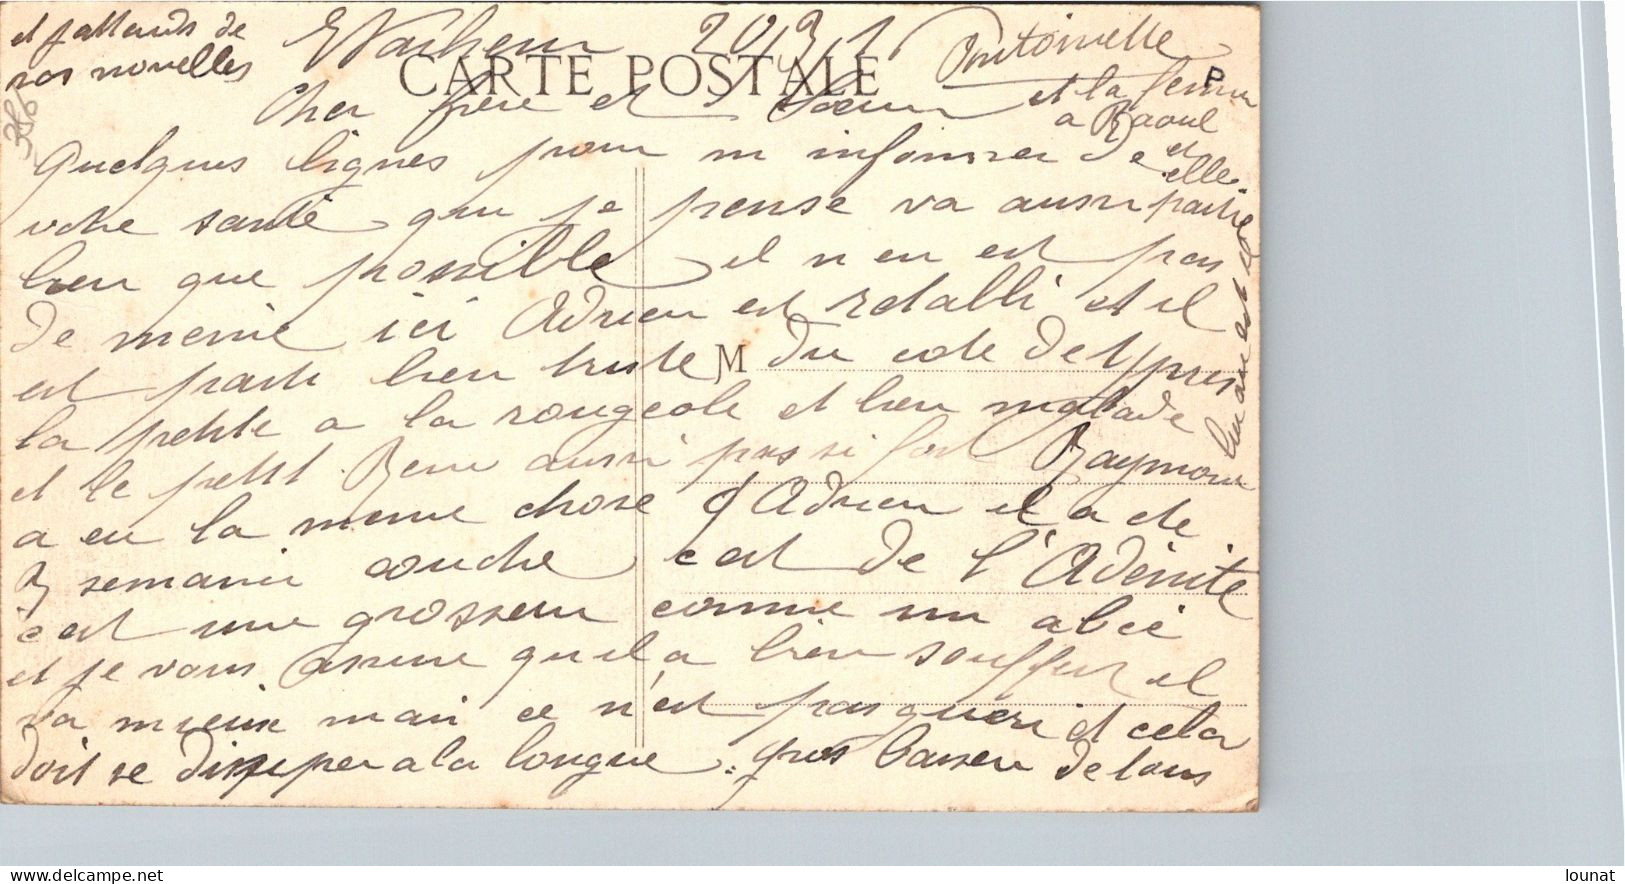 et j'attends de
vos nouvelles
20/3/
CARTE POSTALE
Cher frère et Sœur
quelques lignes pour m informer de
votre santé que je pense va aussi
bien que possible il n en est pas
de meme ici Adrien est retabli et il
est parti bien triste du cote de Ypres
M
la petite a la rougeole et bien malade
et le petit Rene aussi pas si fort Raymond
a eu la meme chose d'Adrien il a ete
3 semaine couche c est de l'Adénite
c'est une grosseur comme un abcé
et je vous assure qu il a bien souffert il
va mieux mais ce n'est pas guéri et cela
doit se dissiper a la longue. gros baiser de tous
et la femme
a Raoul
et
elle
partie
P
386
Delcampe.net
lounat